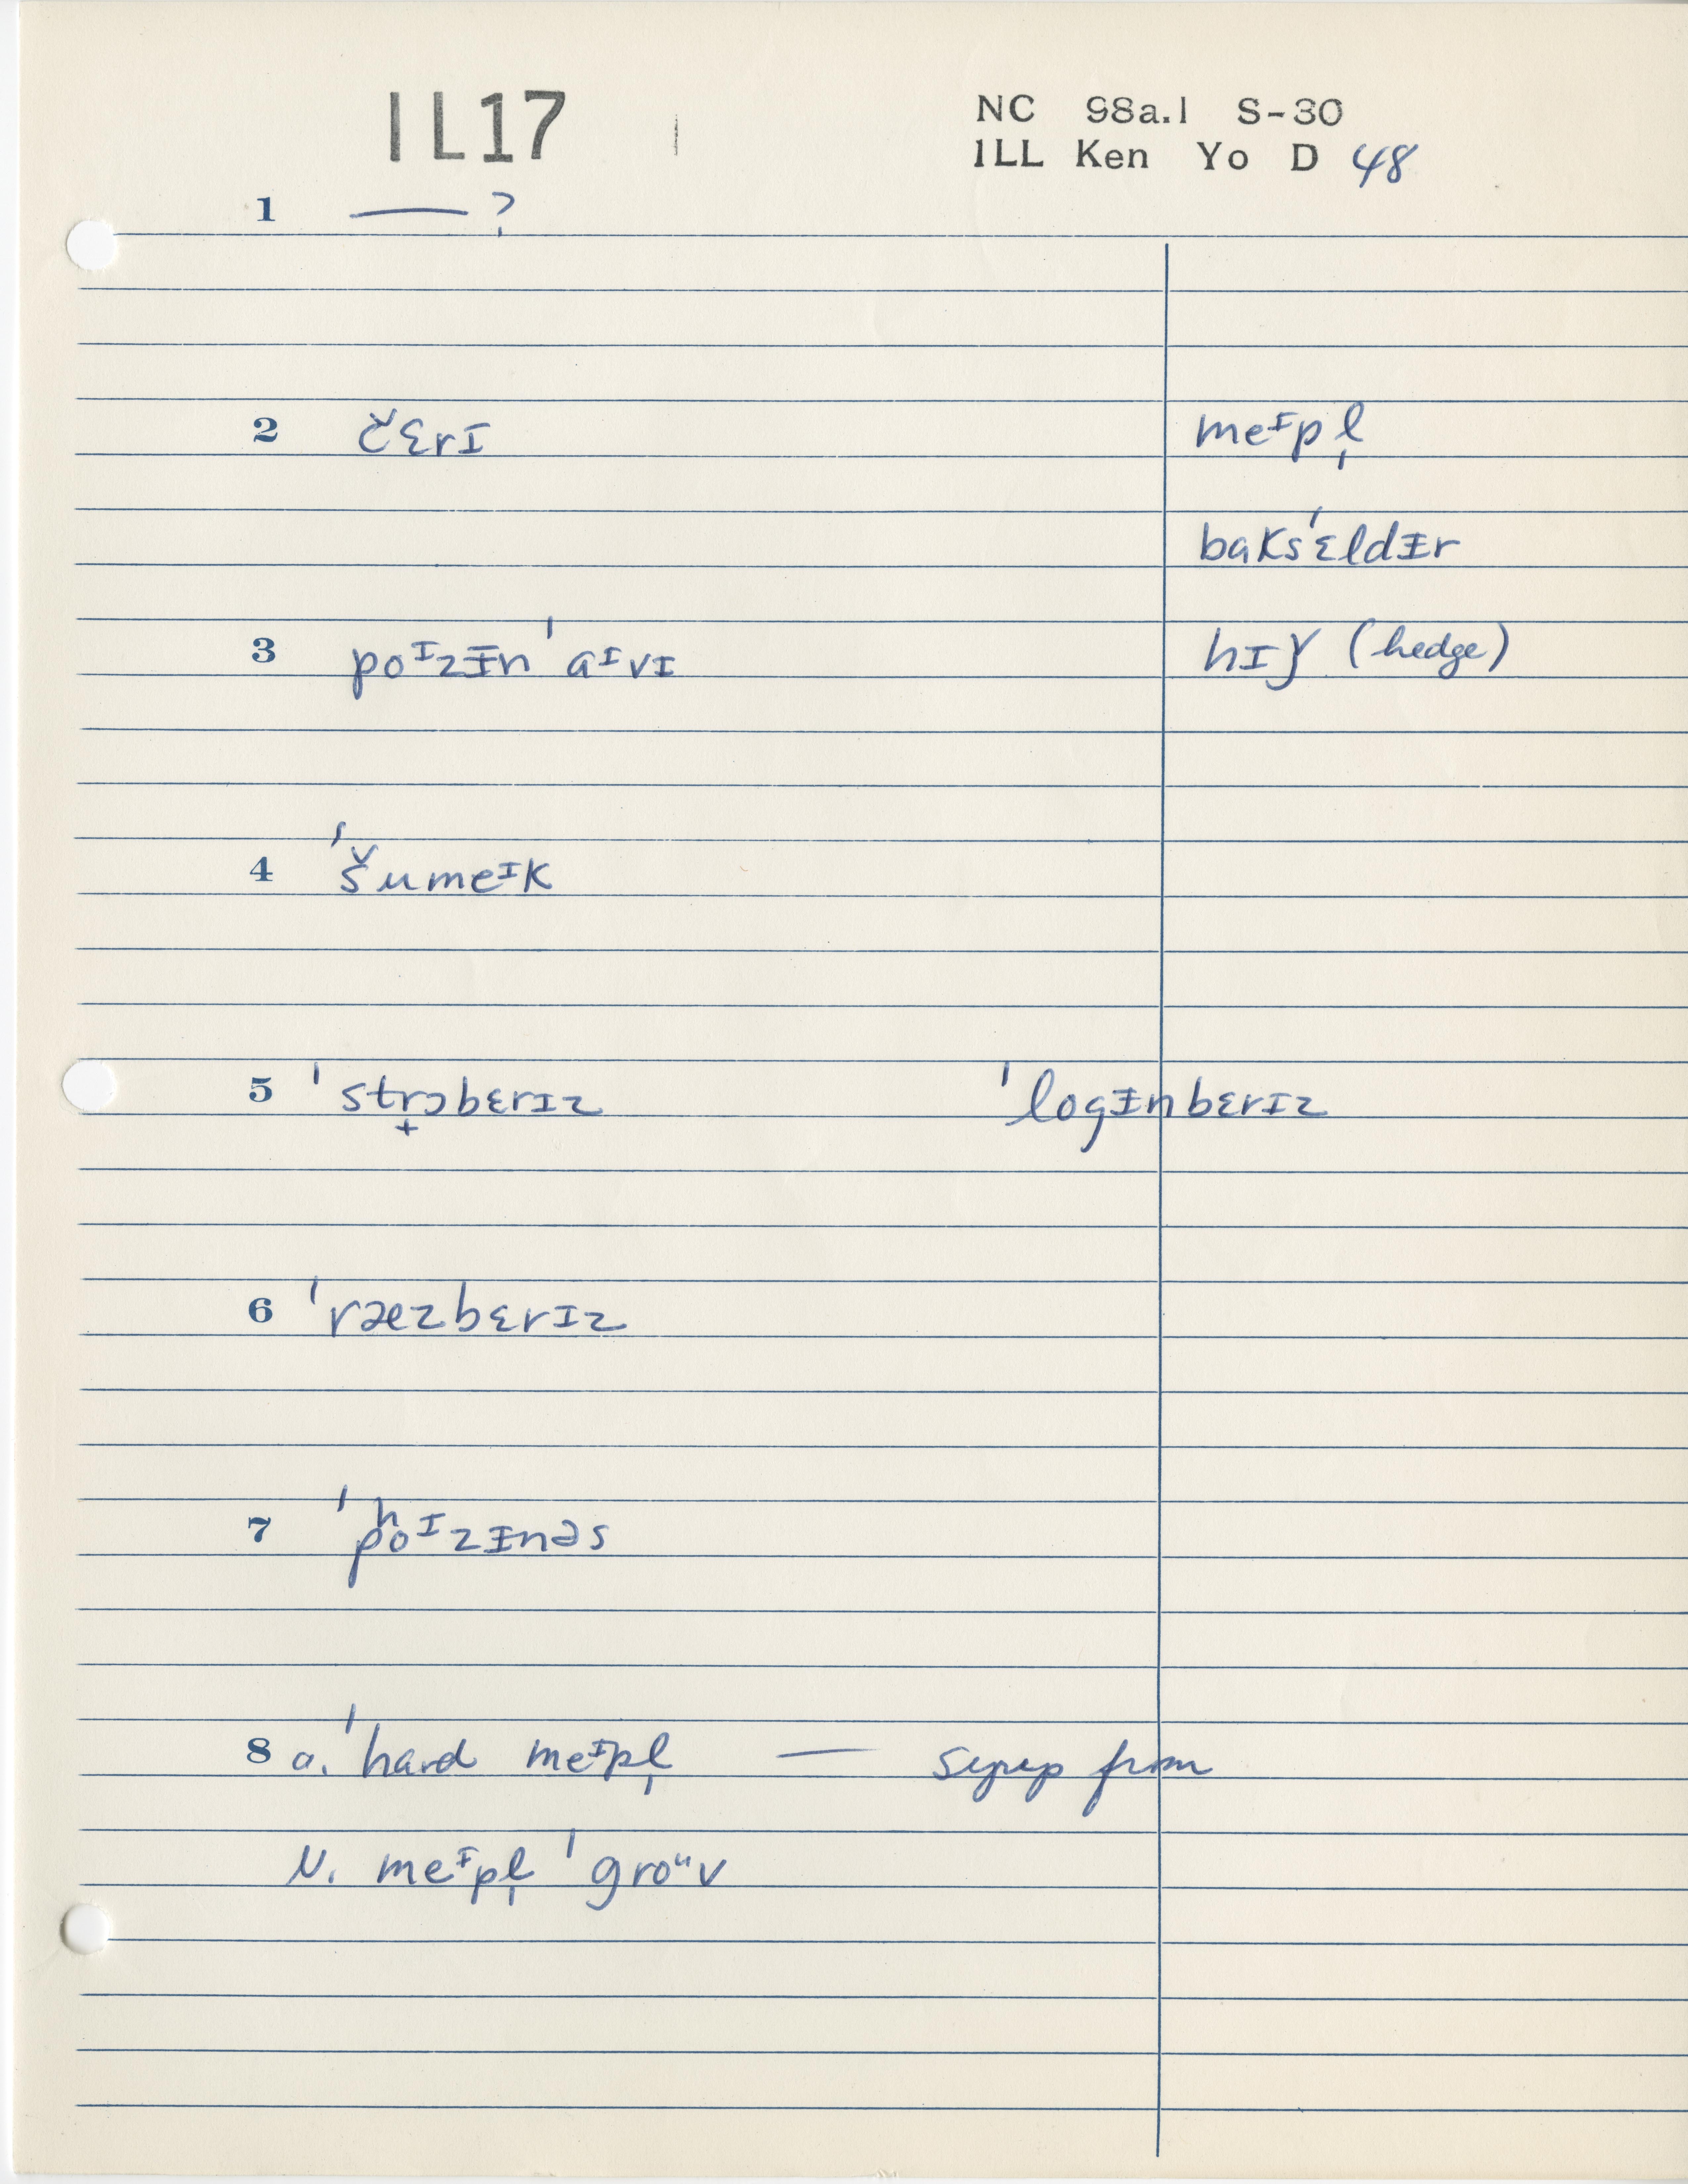 IL17 |
NC 98a.1 S-30
ILL Ken Yo D 48
1 —— ?
2 čɛrɪ meᶦpl̩
baks'ɛldɨr
3 poᶦzɨn 'aᶦvɪ hɪǰ (hedge)
4 'šumeᶦk
5 'str̟ɔbɛrɪz 'logɨnbɛrɪz
6 'ræzbɛrɪz
7 'pʰoᶦzɨnəs
8 a. 'hard meᶦpl̩ — syrup from
N. meᶦpl̩ 'groᵘv